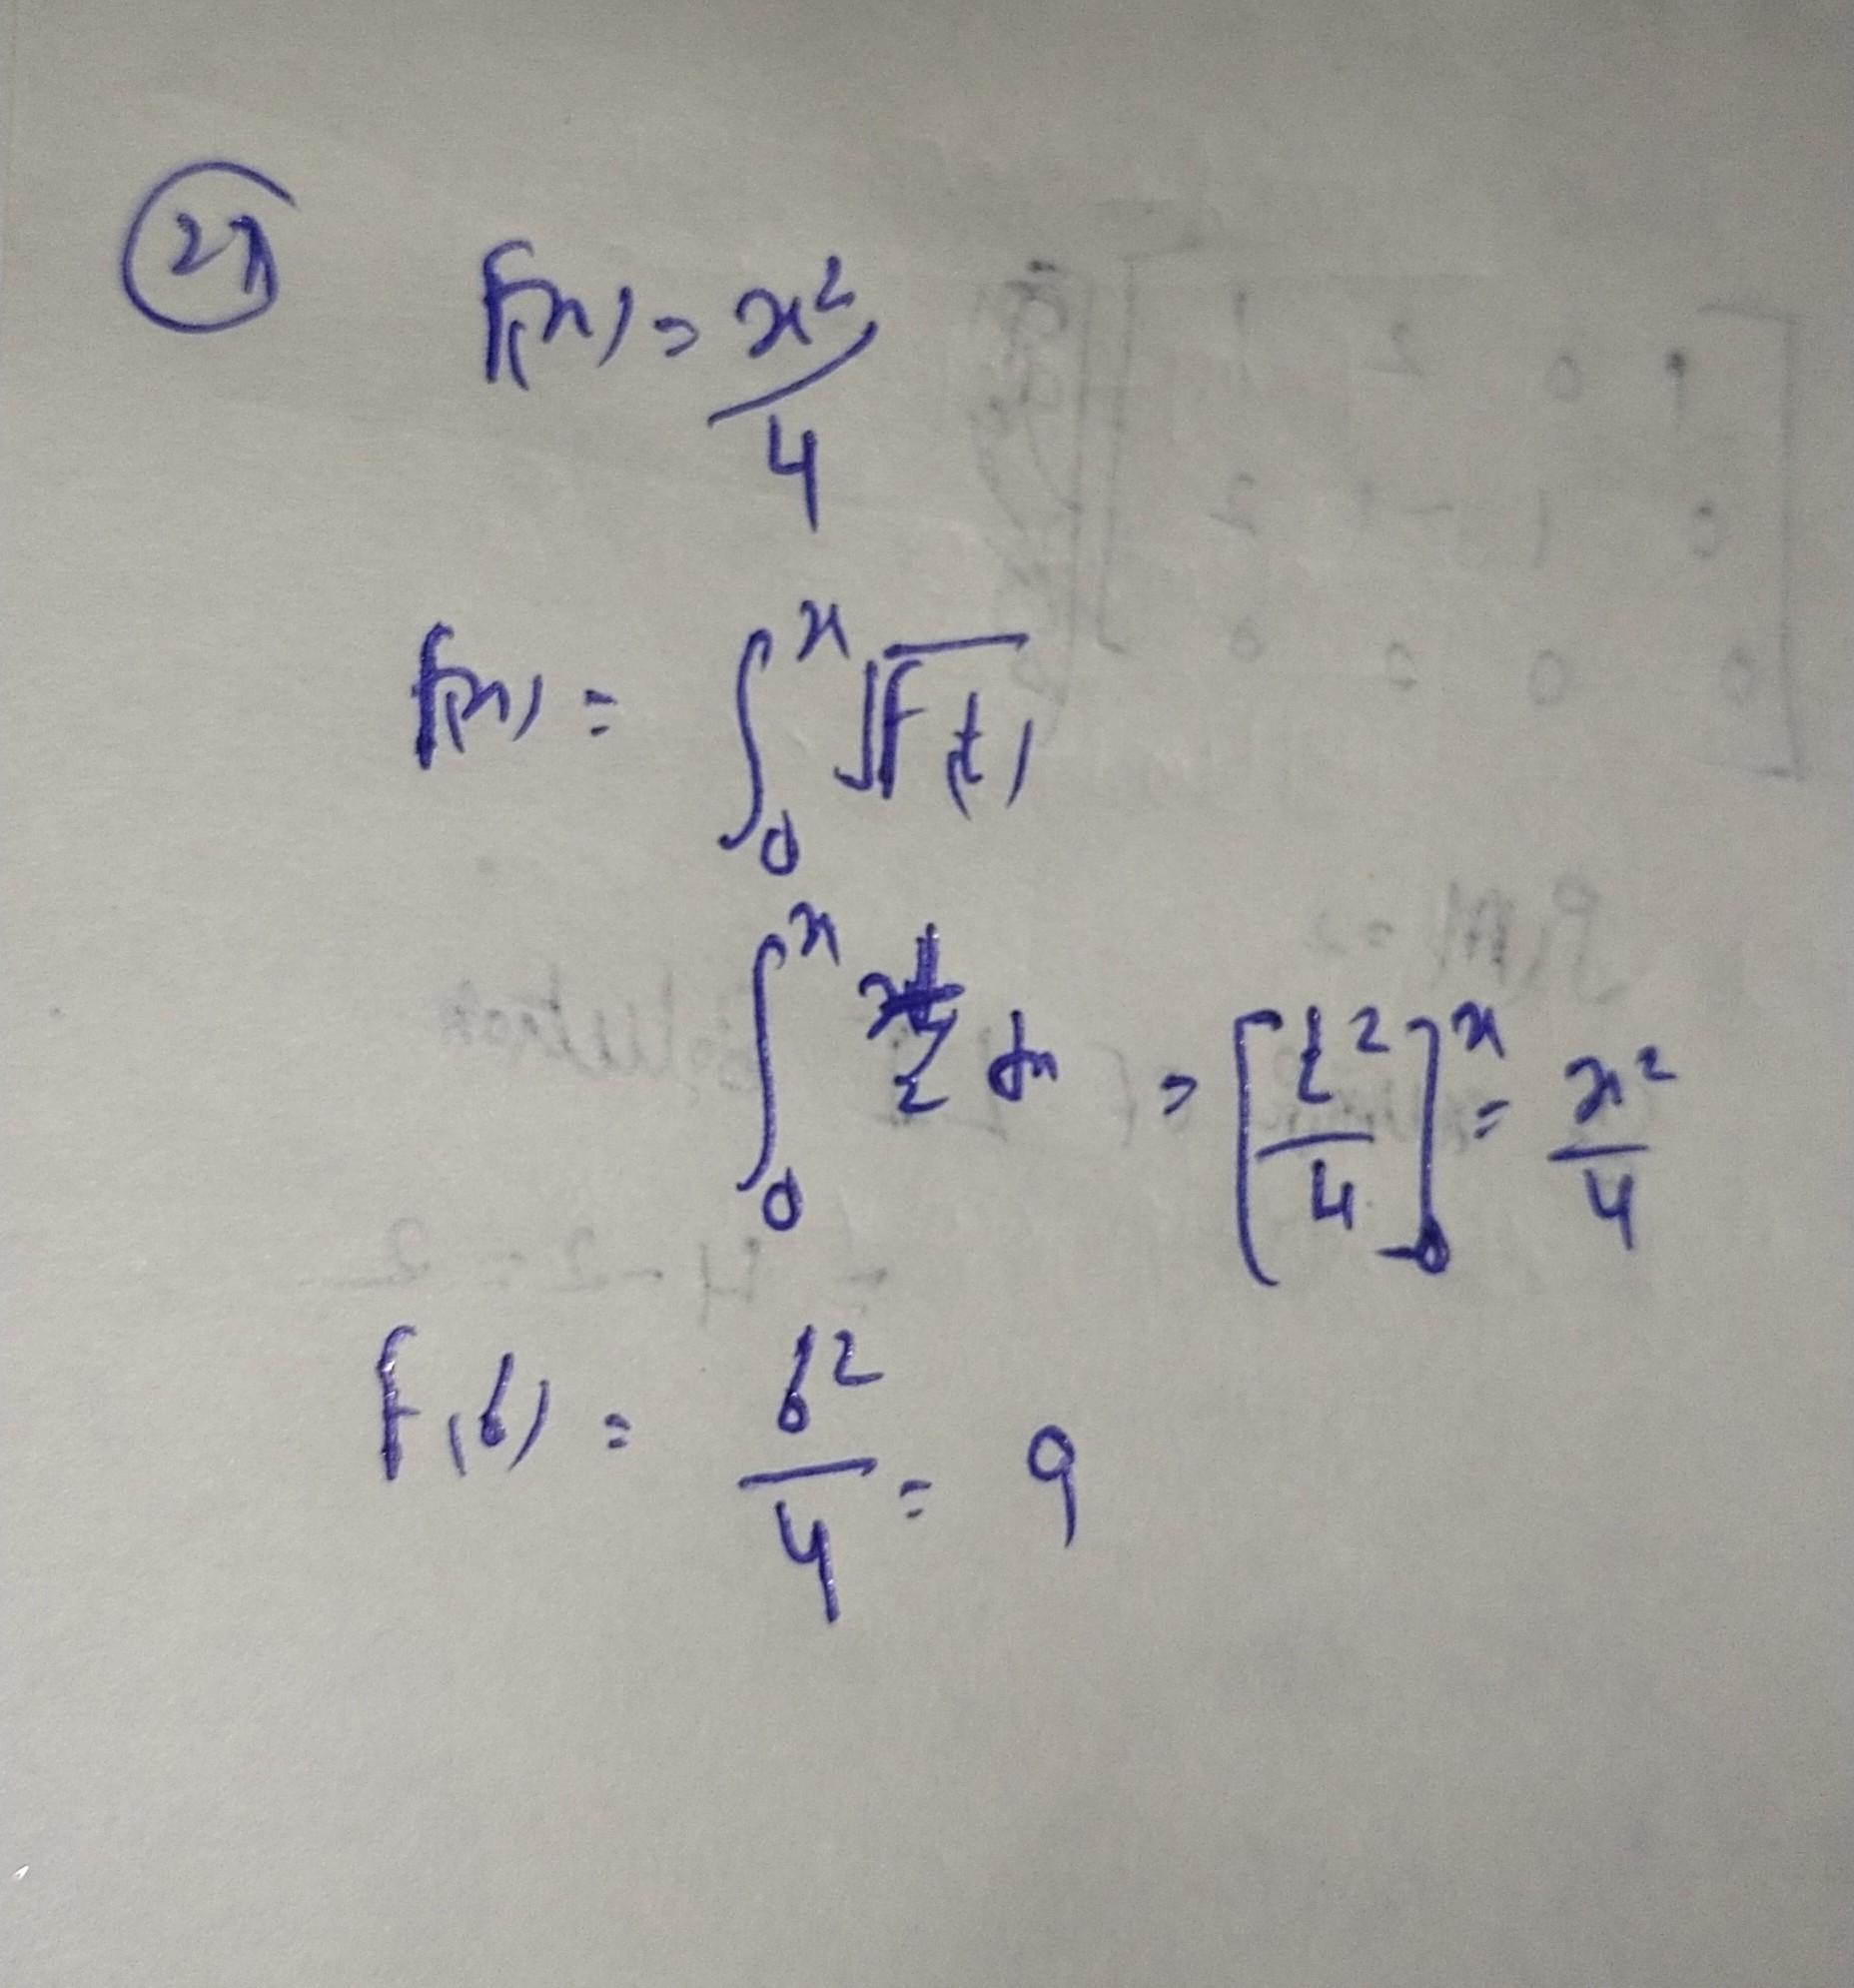 27
f(x) = x²/4
f(x) = ∫₀ˣ √f(t)
∫₀ˣ t/2 dx = [t²/4]₀ˣ = x²/4
f(6) = 6²/4 = 9